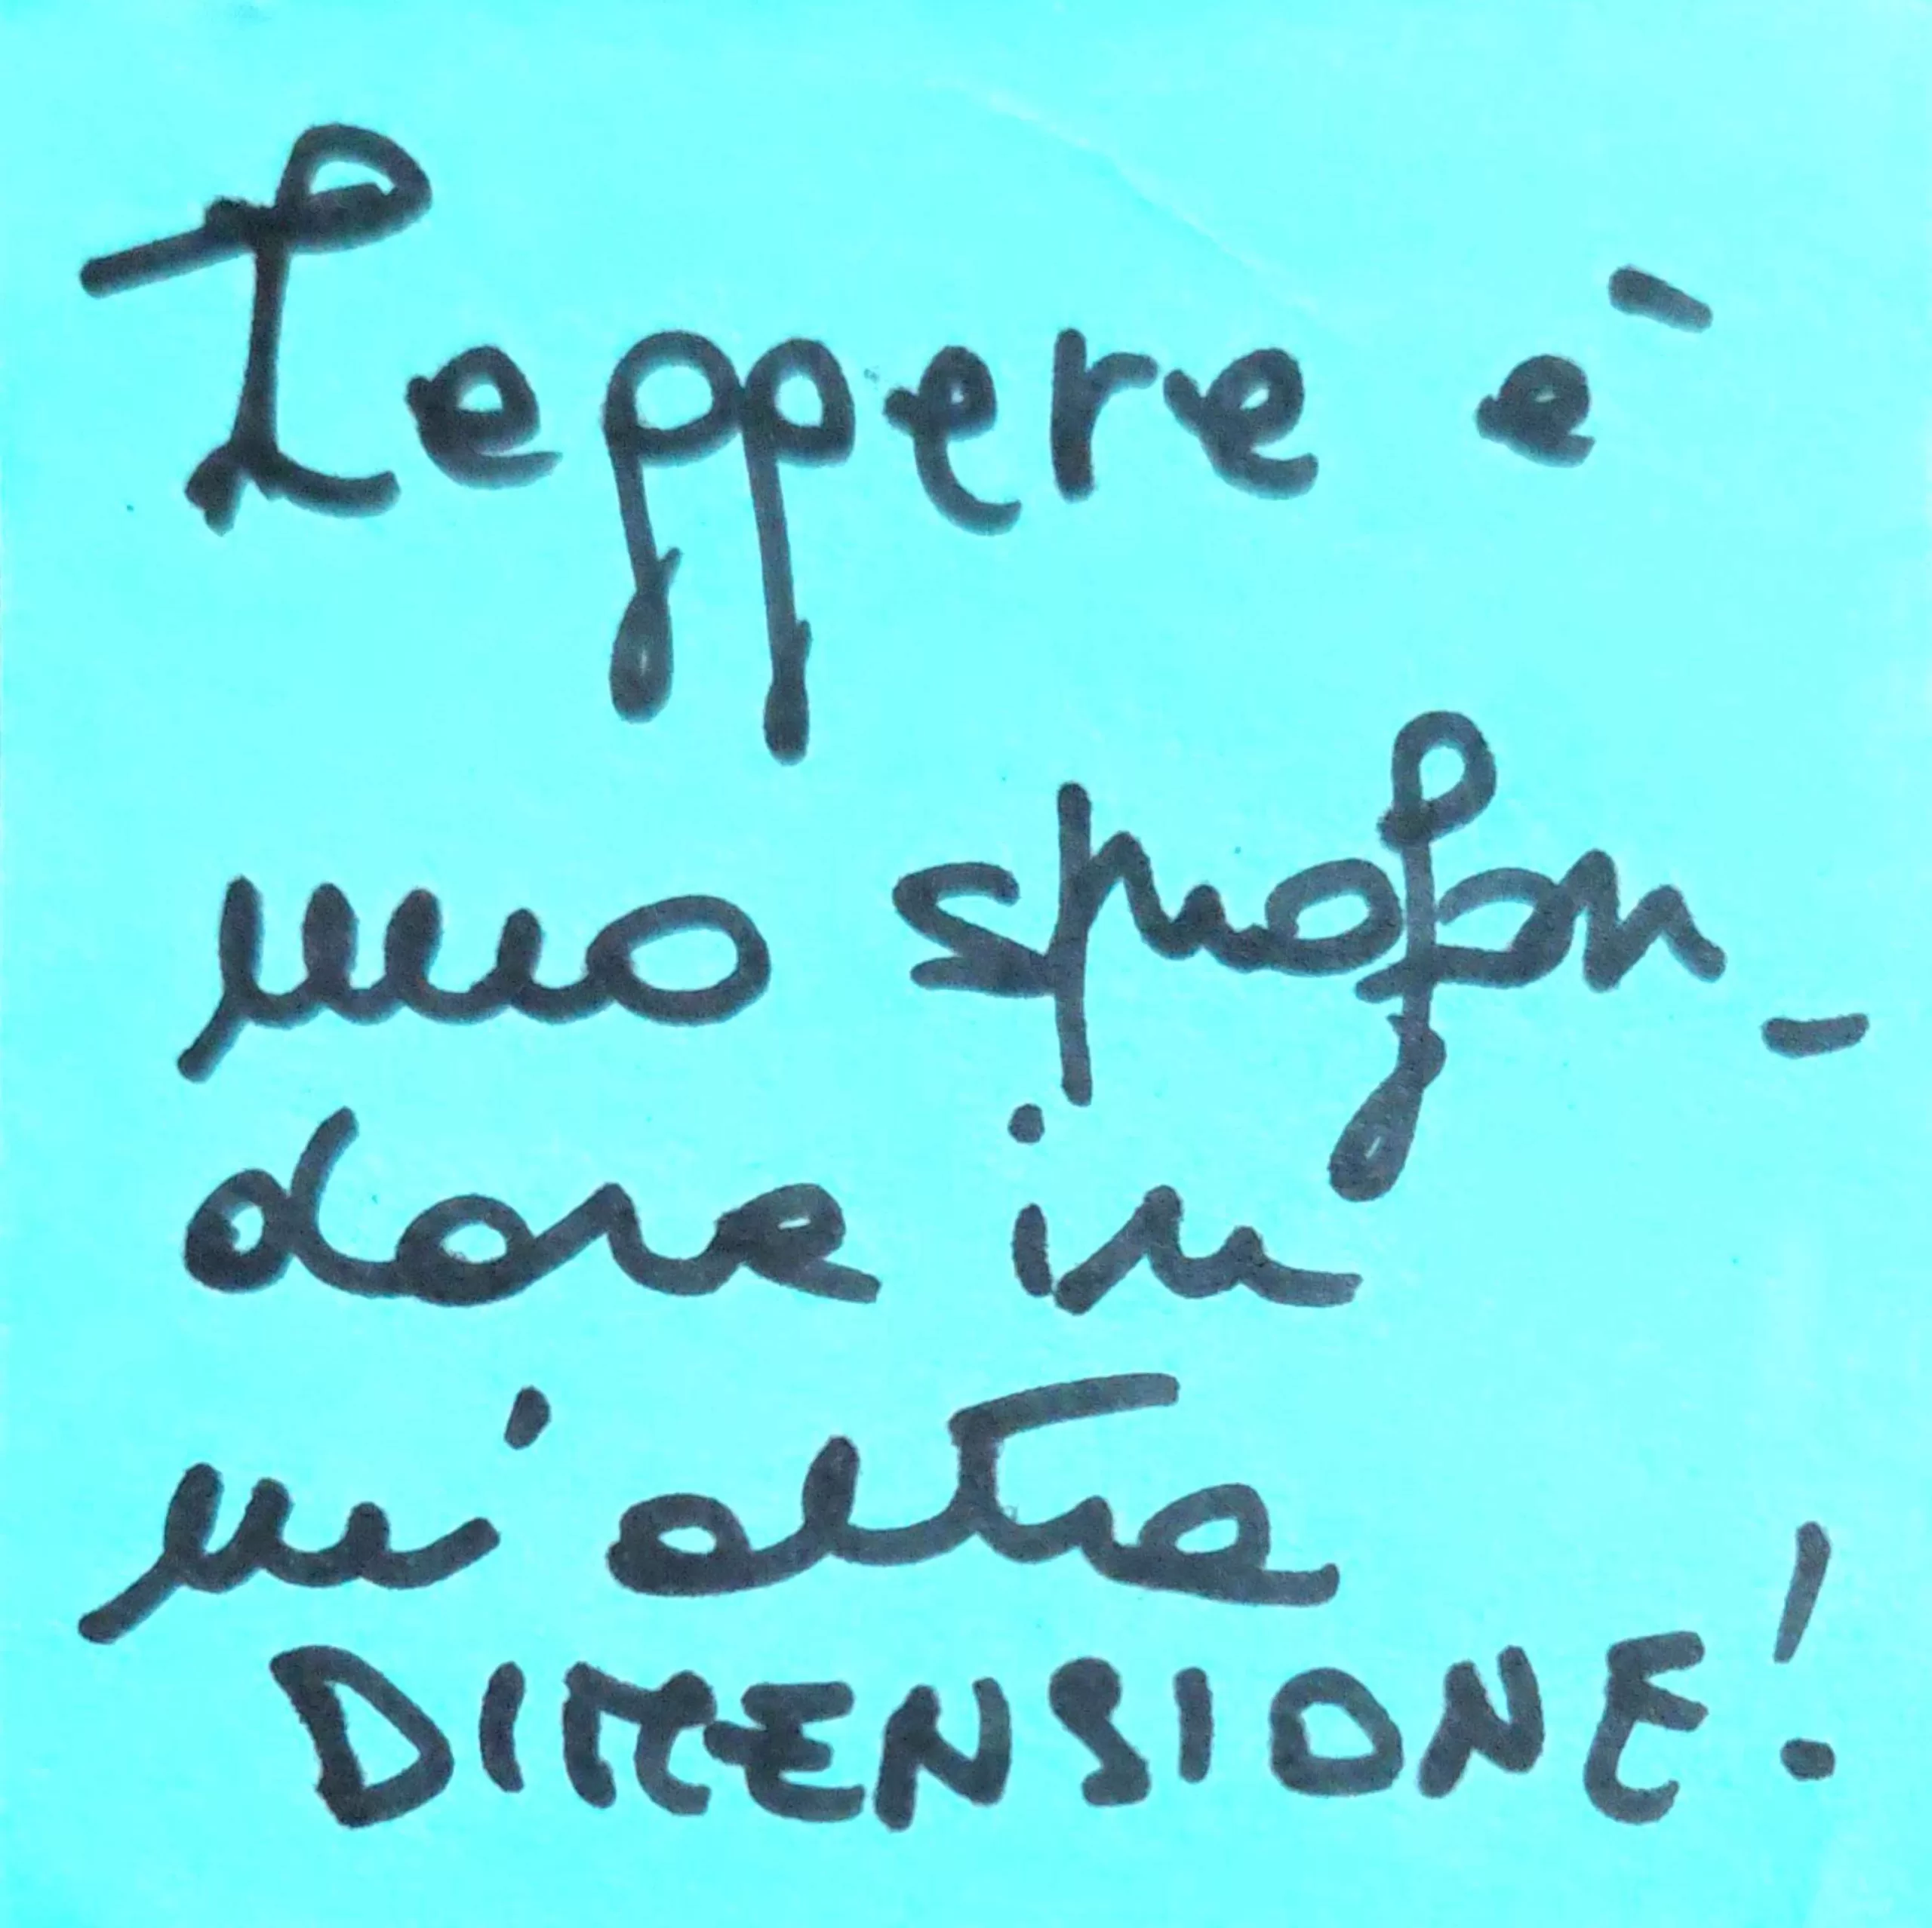 Leggere è
uno sprofon-
dare in
un'altra
DIMENSIONE!